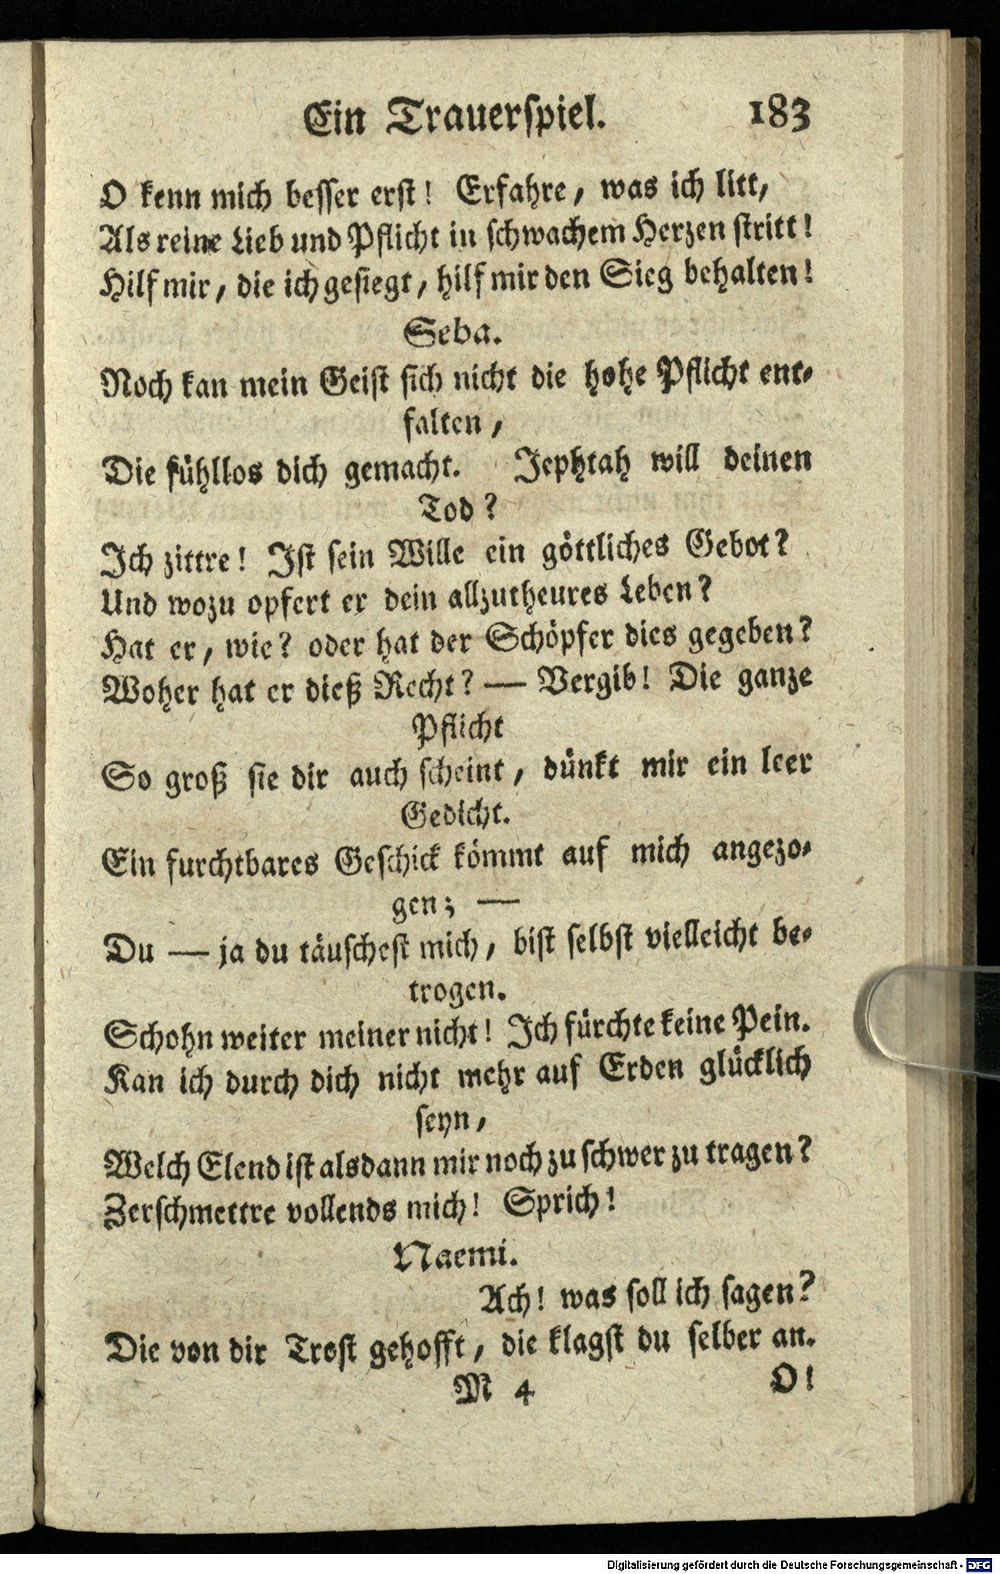 Ein Trauerſpiel. 183
O kenn mich beſſer erſt! Erfahre, was ich litt,
Als reine Lieb und Pflicht in ſchwachem Herzen ſtritt!
Hilf mir, die ich geſiegt, hilf mir den Sieg behalten!
Seba.
Noch kan mein Geiſt ſich nicht die hohe Pflicht ent-
falten,
Die fühllos dich gemacht. Jephtah will deinen
Tod?
Ich zittre! Iſt ſein Wille ein göttliches Gebot?
Und wozu opfert er dein allzutheures Leben?
Hat er, wie? oder hat der Schöpfer dies gegeben?
Woher hat er dieß Recht? — Vergib! Die ganze
Pflicht
So groß ſie dir auch ſcheint, dünkt mir ein leer
Gedicht.
Ein furchtbares Geſchick kömmt auf mich angezo-
gen; —
Du — ja du täuſcheſt mich, biſt ſelbſt vielleicht be-
trogen.
Schohn weiter meiner nicht! Ich fürchte keine Pein.
Kan ich durch dich nicht mehr auf Erden glücklich
ſeyn,
Welch Elend iſt alsdann mir noch zu ſchwer zu tragen?
Zerſchmettre vollends mich! Sprich!
Naemi.
Ach! was ſoll ich ſagen?
Die von dir Troſt gehofft, die klagſt du ſelber an.
M 4 O!
Digitalisierung gefördert durch die Deutsche Forschungsgemeinschaft - DFG